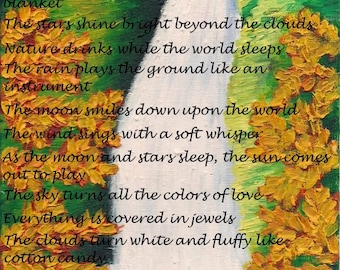 blanket
The stars shine bright beyond the clouds
Nature drinks while the world sleeps
The rain plays the ground like an
instrument
The moon smiles down upon the world
The wind sings with a soft whisper
As the moon and stars sleep, the sun comes
out to play
The sky turns all the colors of love
Everything is covered in jewels
The clouds turn white and fluffy like
cotton candy